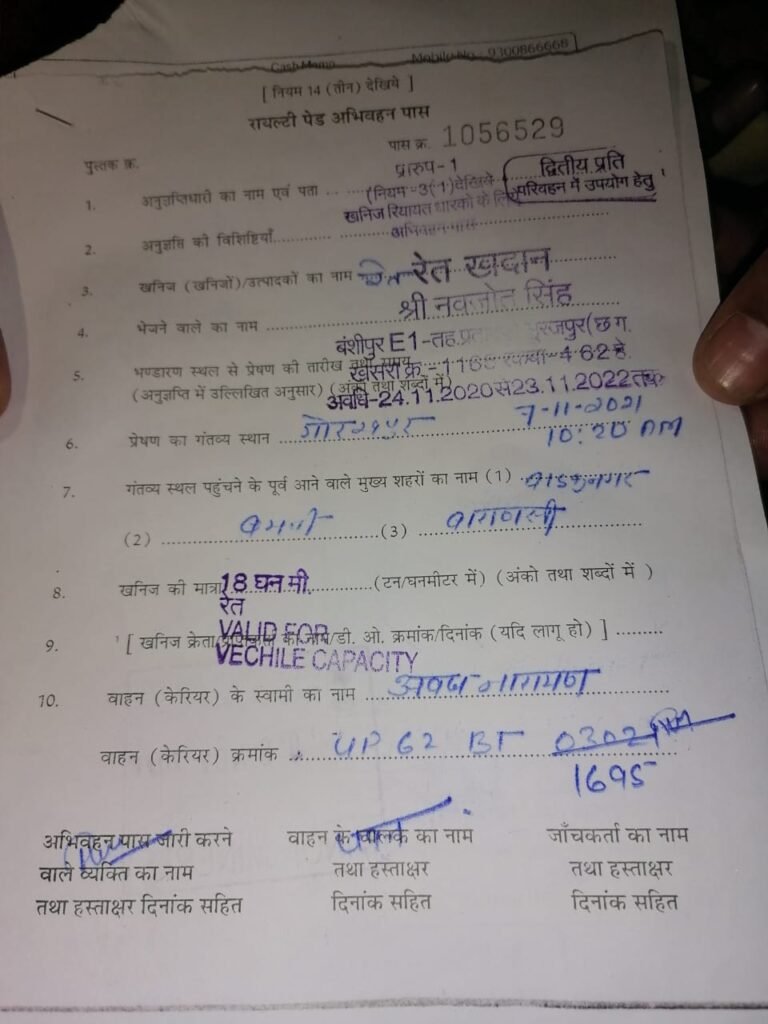 Cash Memo Mobile No - 9300866668
[ नियम 14 (तीन) देखिये ]
रायल्टी पेड अभिवहन पास
पुस्तक क्र. पास क्र. 1056529
प्रारुप-1
द्वितीय प्रति
परिवहन में उपयोग हेतु
1. अनुज्ञप्तिधारी का नाम एवं पता (नियम-3(1)देखिये
खनिज रियायत धारको के लिए
2. अनुज्ञप्ति की विशिष्टियाँ अभिवहन पास
3. खनिज (खनिजों)/उत्पादकों का नाम रेत रेत खदान
4. भेजने वाले का नाम श्री नवजोत सिंह
बंशीपुर E1-तह.प्रत सूरजपुर(छ.ग.
5. भण्डारण स्थल से प्रेषण की तारीख तथा समय
खसरा क्र.- रकबा-4.62हे.
(अनुज्ञप्ति में उल्लिखित अनुसार) (अंको तथा शब्दों में)
अवधि-24.11.2020से23.11.2022तक
7-11-2021
6. प्रेषण का गंतव्य स्थान गोरखपुर 10:20 AM
7. गंतव्य स्थल पहुंचने के पूर्व आने वाले मुख्य शहरों का नाम (1) वाड्रफनगर
(2) (3) वाराणसी
8. खनिज की मात्रा 18 घन मी. (टन/घनमीटर में) (अंको तथा शब्दों में )
रेत
VALID FOR
9. [ खनिज क्रेता का नाम/डी. ओ. क्रमांक/दिनांक (यदि लागू हो) ]
VECHILE CAPACITY
10. वाहन (केरियर) के स्वामी का नाम नारायण
वाहन (केरियर) क्रमांक UP 62 BT 0302
1695
अभिवहन पास जारी करने वाहन के चालक का नाम जाँचकर्ता का नाम
वाले व्यक्ति का नाम तथा हस्ताक्षर तथा हस्ताक्षर
तथा हस्ताक्षर दिनांक सहित दिनांक सहित दिनांक सहित